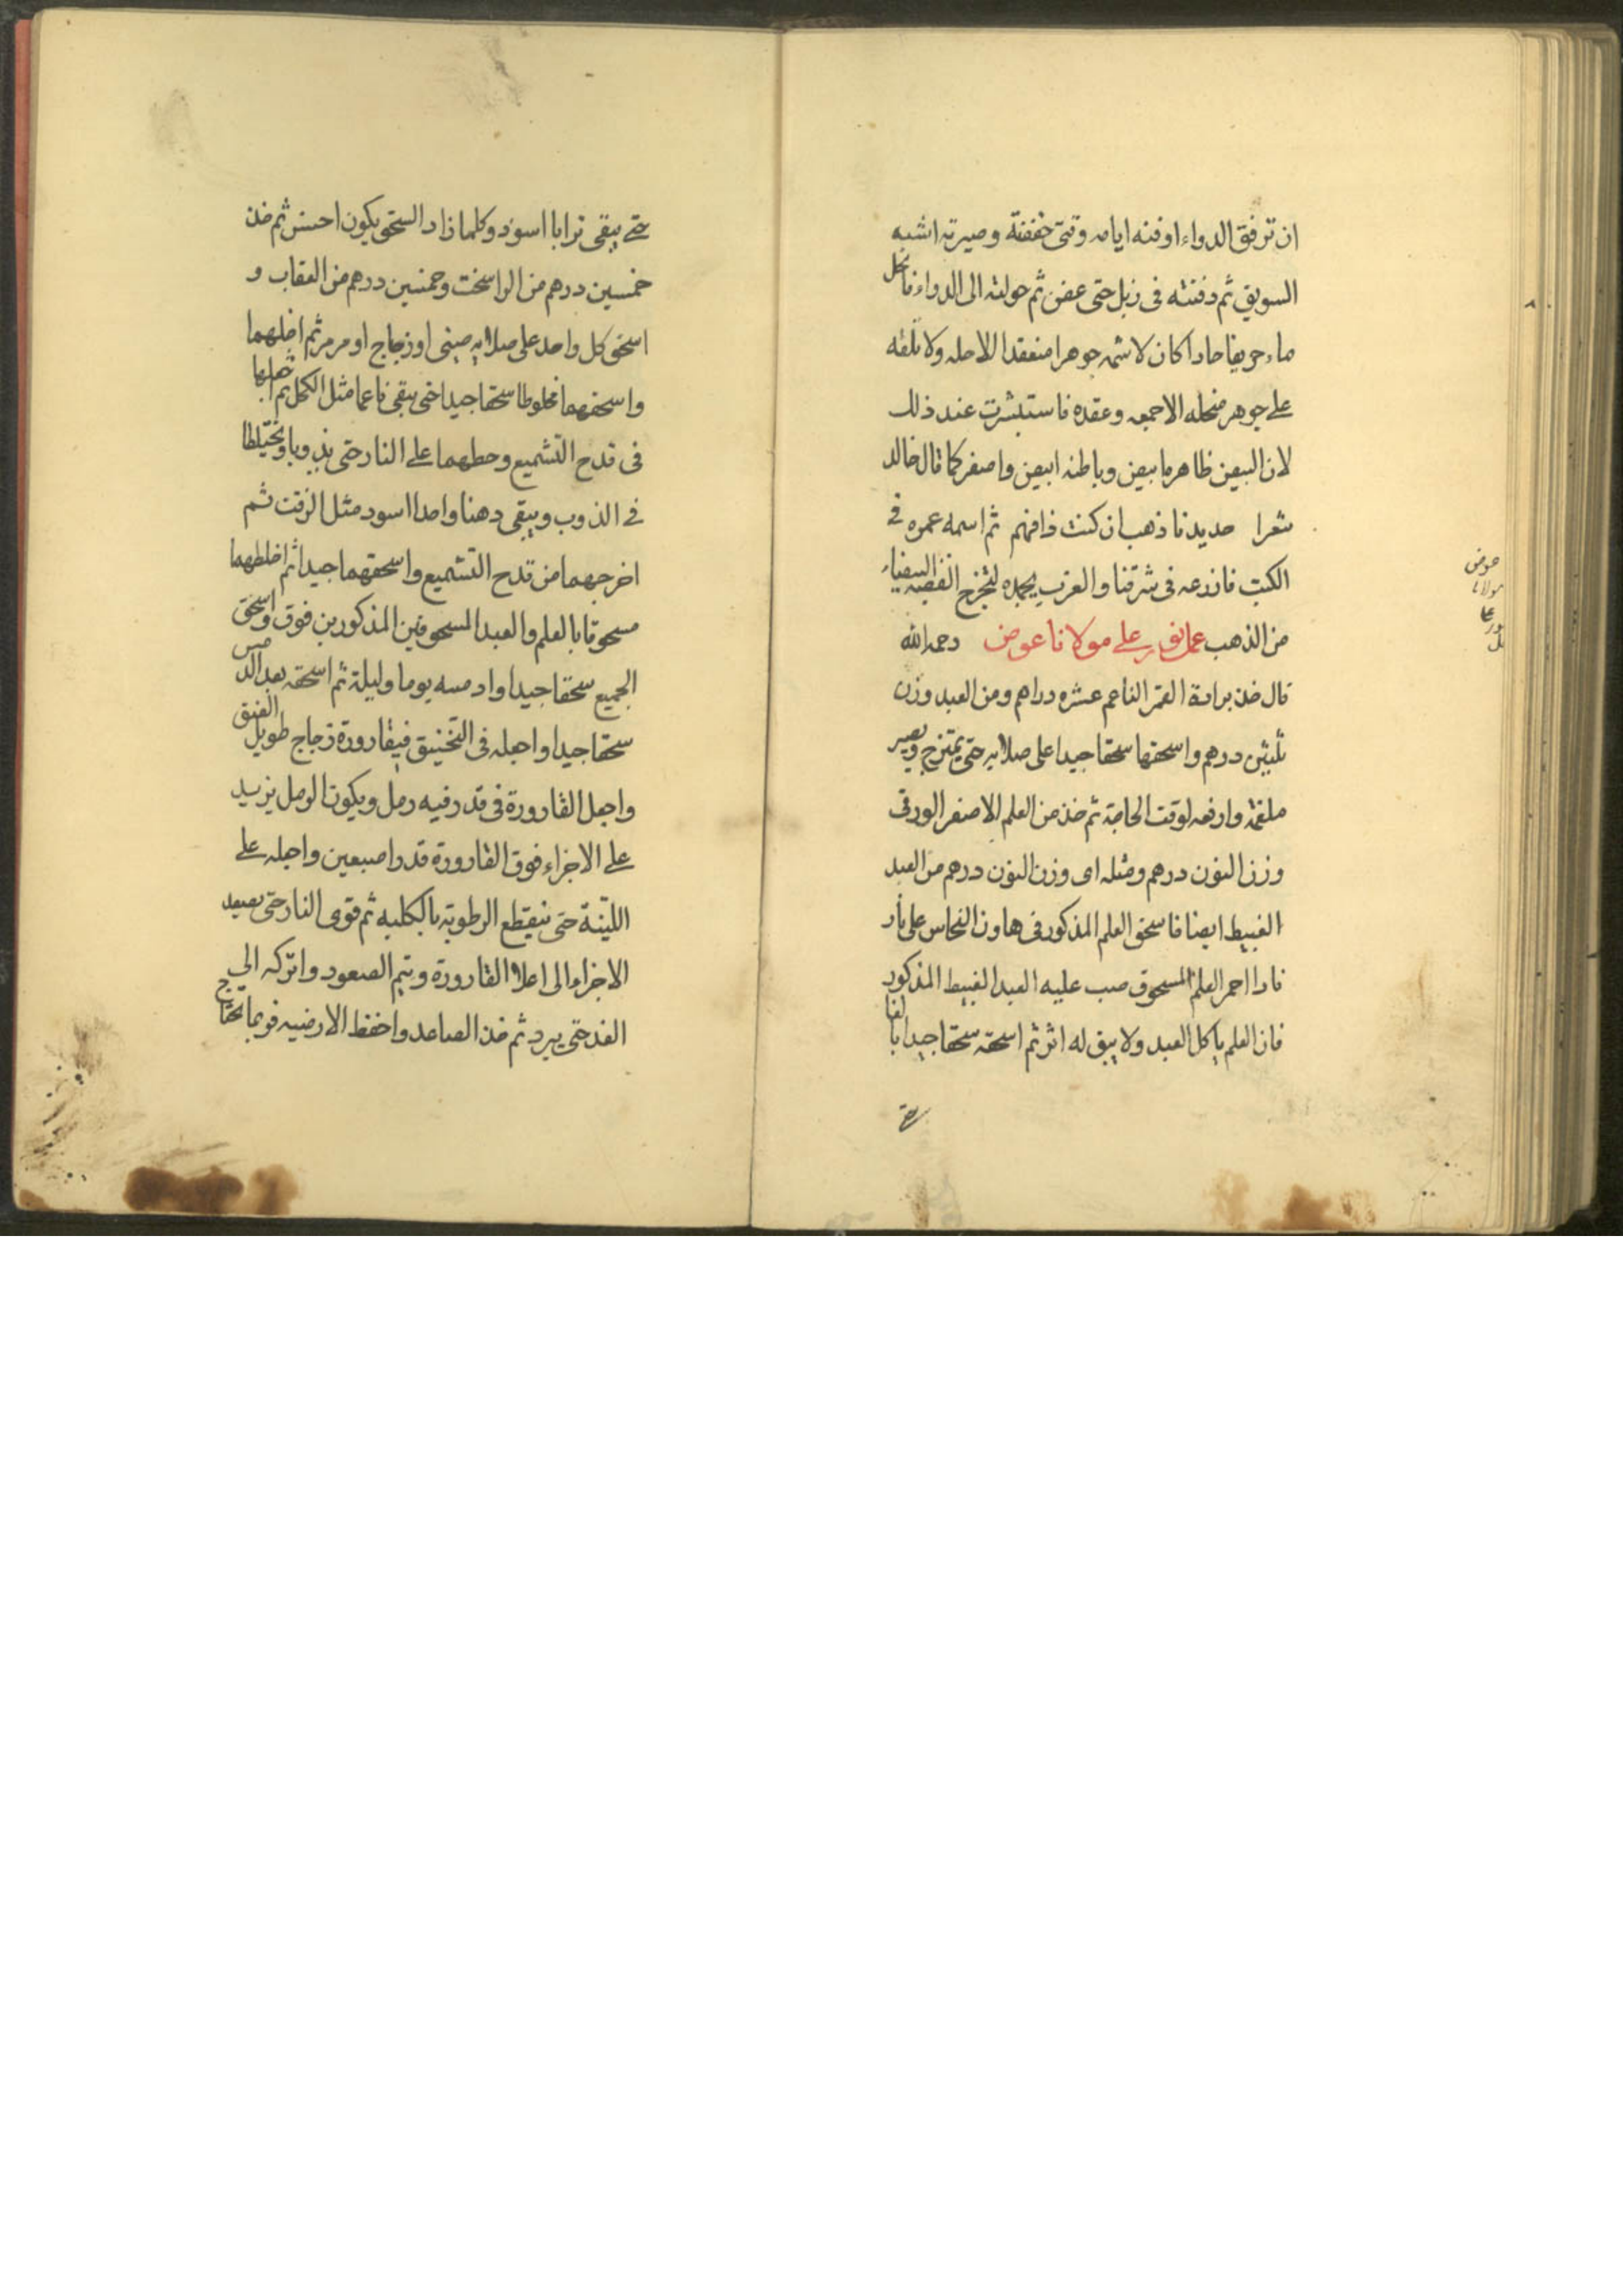 ان ترفق الدواء اوفنه ايامه وقتى خففته وصيرته اشبه
السويق ثم دفنته فى زبل حتى عفن ثم حولته الى الدواء فانحل
ماء حريفا حادا كان لا شمه جوهرا منعقدا الا حله ولا تلقه
على جوهر منحله الا جمعه وعقده فاستبشرت عند ذلك
لان البيض ظاهرها بيض وباطنه ابيض واصفر كما قال خالد
شعرا حديدنا ذهب ان كنت ذا فهم ثم اسمه عمره فى
الكتب فازرعه فى شرقنا والغرب يحمده لتخرج الفضه البيضاء
من الذهب عمل على مولانا عوض رحمه الله
قال خذ برادة القمر الناعم عشره دراهم ومن العبد وزن
ثلثين درهم واسحقها سحقا جيدا على صلايه حتى يمتزج ويصير
ملغمة وارفعه لوقت الحاجة ثم خذ من العلم الاصفر الورقى
وزن النون درهم ومثله اى وزن النون درهم من العبد
الغبيط ايضا فاسحق العلم المذكور فى هاون النحاس على نار
فاذا احمر العلم المسحوق صب عليه العبد الغبيط المذكور
فان العلم ياكل العبد ولا يبق له اثر ثم اسحقه سحقا جيدا بالغا
حتى
عوض
مولانا
على
حتى يبقى ترابا اسود وكلما زاد السحق يكون احسن ثم خذ
خمسين درهم من الراسخت وخمسين درهم من العقاب و
اسحق كل واحد على صلايه صينى او زجاج او مرمر ثم اخلهما
واسحقهما مخلوطا سحقا جيدا حتى يبقى ناعما مثل الكحل ثم اجعلها
فى قدح التشميع وحطهما على النار حتى يذوبا ويختلطا
فى الذوب ويبقى دهنا واحدا اسود مثل الزفت ثم
اخرجهما من قدح التشميع واسحقهما جيدا ثم اخلطهما
مسحوقا بالعلم والعبد المسحوقين المذكورين فوق واسحق
الجميع سحقا جيدا وادمسه يوما وليلة ثم اسحقه بعد الدمس
سحقا جيدا واجعله فى التخنيق فى قارورة زجاج طويل العنق
واجعل القارورة فى قدر فيه رمل ويكون الرمل يزيد
على الاجزاء فوق القارورة قدر اصبعين واجله على
اللينة حتى ينقطع الرطوبة بالكلية ثم قوى النار حتى يصعد
الاجزاء الى اعلا القارورة ويتم الصعود واتركه الى
الغد حتى يبرد ثم خذ الصاعد واحفظ الارضيه فربما تحتاج